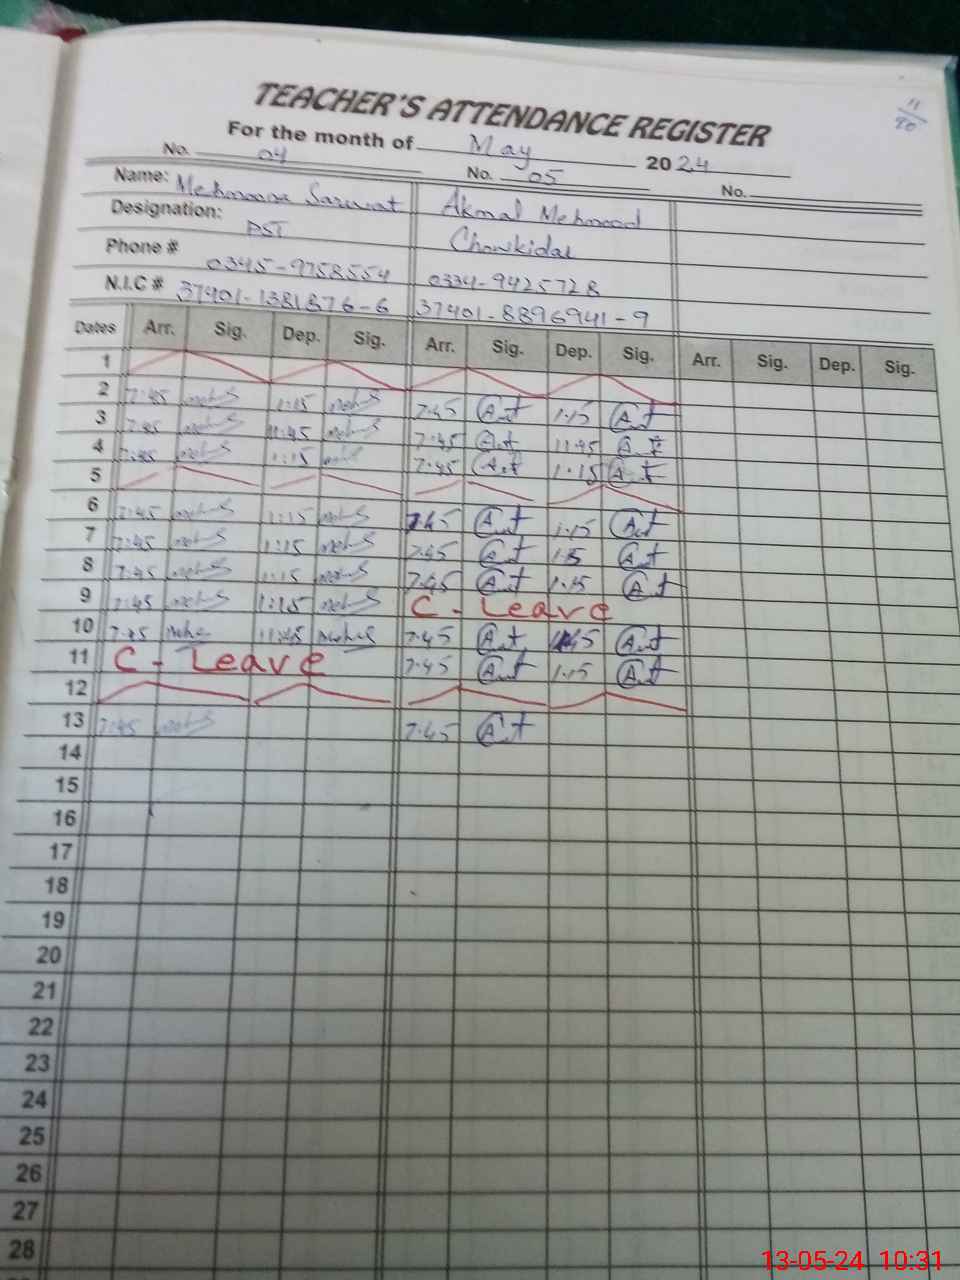 TEACHER'S ATTENDANCE REGISTER
11
For the month of May 2024
No. 04 No. 05 No.
Name: Mehmoona Sarwat Akmal Mehmood
Designation: PST Chowkidar
Phone # 0345-9758554 0334-9425728
N.I.C # 37401-1381876-6 37401-8896941-9
Dates Arr. Sig. Dep. Sig. Arr. Sig. Dep. Sig. Arr. Sig. Dep. Sig.
1
2 7:45 1:15 7:45 1:15
3 7:45 11:45 7:45 11:45
4 7:45 1:15 7:45 1:15
5
6 7:45 1:15 7:45 1:15
7 7:45 1:15 7:45 1:5
8 7:45 1:15 7:45 1:15
9 7:45 1:15 C - Leave
10 7:45 11:45 7:45 1145
11 C - Leave 7:45 1:15
12
13 7:45 7:45
14
15
16
17
18
19
20
21
22
23
24
25
26
27
28
13-05-24 10:31